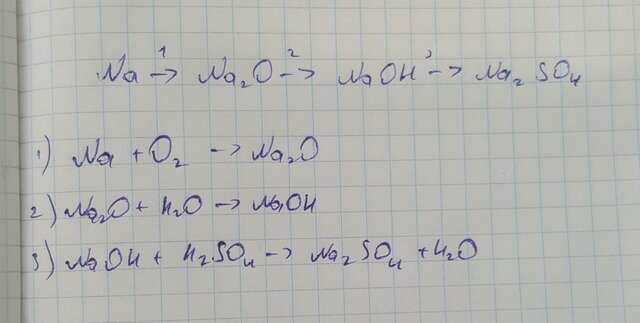 Na →¹ Na₂O →² NaOH →³ Na₂SO₄
1) Na + O₂ → Na₂O
2) Na₂O + H₂O → NaOH
3) NaOH + H₂SO₄ → Na₂SO₄ + H₂O